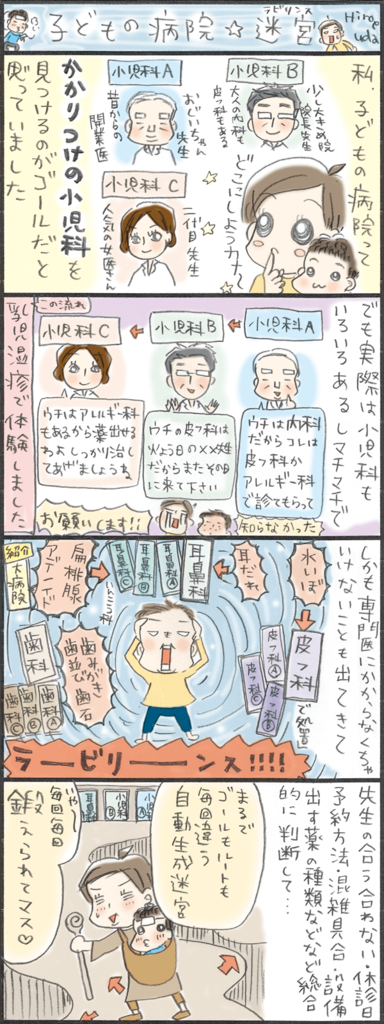 子どもの病院☆迷宮
ラビリンス
Hiroe
uda
私、子どもの病院って
小児科B
少し大きめ院
院長先生
大人の内科も
皮フ科もある
小児科A
おじいちゃん
先生
昔からの
開業医
小児科C
二代目先生
人気の女医さん
どこにしようカナ~
かかりつけの小児科を
見つけるのがゴールだと
思っていました
でも実際は小児科も
いろいろあるしマチマチで
この流れ
小児科A
小児科B
小児科C
ウチは内科
だからコレは
皮フ科か
アレルギー科
で診てもらって
ウチの皮フ科は
火よう日の××先生
だからまたその日
に来て下さい
ウチはアレルギー科
もあるから薬出せる
わよ しっかり治し
てあげましょうね
知らなかった
お願いします!!
乳児湿疹で体験しました
しかも専門医にかからなくちゃ
いけないことも出てきて
水いぼ
皮フ科
で処置
皮フ科A
皮フ科B
皮フ科C
耳だれ
耳鼻科
耳鼻科A
耳鼻科B
耳鼻科C
扁桃腺
アデノイド
紹介
大病院
歯みがき
歯並び
歯石
歯科
歯科A
歯科B
歯科C
ラービリーーンス!!!!
先生の合う合わない・休診日
予約方法・混雑具合・設備
出す薬の種類などなど総合
的に判断して…
小児科
耳鼻
まるで
ゴールもルートも
毎回違う
自動生成迷宮
いや~
毎回毎回
鍛えられてマス♡